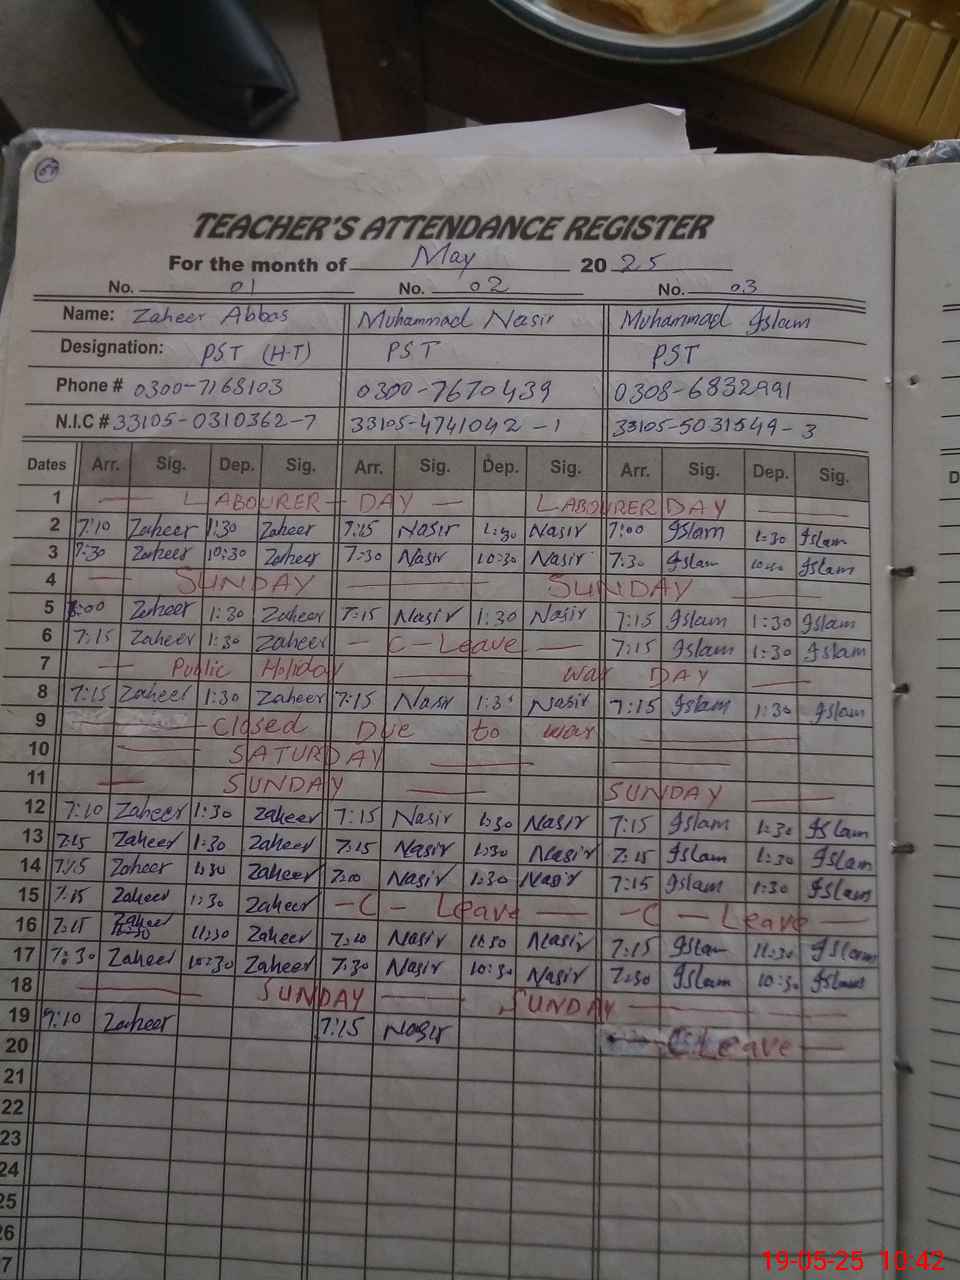 TEACHER'S ATTENDANCE REGISTER
For the month of May 20 25
No. 01 No. 02 No. 03
Name: Zaheer Abbas Muhammad Nasir Muhammad Islam
Designation: PST (H-T) PST PST
Phone # 0300-7168103 0300-7670439 0308-6832991
N.I.C # 33105-0310362-7 33105-4741042-1 33105-5031549-3
Dates Arr. Sig. Dep. Sig. Arr. Sig. Dep. Sig. Arr. Sig. Dep. Sig.
1 — LABOURER — DAY — LABOURER DAY —
2 7:10 Zaheer 1:30 Zaheer 7:15 Nasir 1:30 Nasir 7:00 Islam 1:30 Islam
3 7:30 Zaheer 10:30 Zaheer 7:30 Nasir 10:30 Nasir 7:30 Islam 10:30 Islam
4 — SUNDAY — SUNDAY —
5 8:00 Zaheer 1:30 Zaheer 7:15 Nasir 1:30 Nasir 7:15 Islam 1:30 Islam
6 7:15 Zaheer 1:30 Zaheer — C-Leave — 7:15 Islam 1:30 Islam
7 — Public Holiday — War DAY —
8 7:15 Zaheer 1:30 Zaheer 7:15 Nasir 1:30 Nasir 7:15 Islam 1:30 Islam
9 — Closed Due to war —
10 — SATURDAY —
11 — SUNDAY — SUNDAY —
12 7:10 Zaheer 1:30 Zaheer 7:15 Nasir 1:30 Nasir 7:15 Islam 1:30 Islam
13 7:15 Zaheer 1:30 Zaheer 7:15 Nasir 1:30 Nasir 7:15 Islam 1:30 Islam
14 7:15 Zaheer 1:30 Zaheer 7:00 Nasir 1:30 Nasir 7:15 Islam 1:30 Islam
15 7:15 Zaheer 1:30 Zaheer — C — Leave — — C — Leave —
16 7:15 Zaheer 11:30 Zaheer 7:20 Nasir 11:30 Nasir 7:15 Islam 11:30 Islam
17 7:30 Zaheer 10:30 Zaheer 7:30 Nasir 10:30 Nasir 7:30 Islam 10:30 Islam
18 — SUNDAY — SUNDAY —
19 7:10 Zaheer 7:15 Nasir C Leave —
20
21
22
23
24
25
26
27
D
19-05-25 10:42